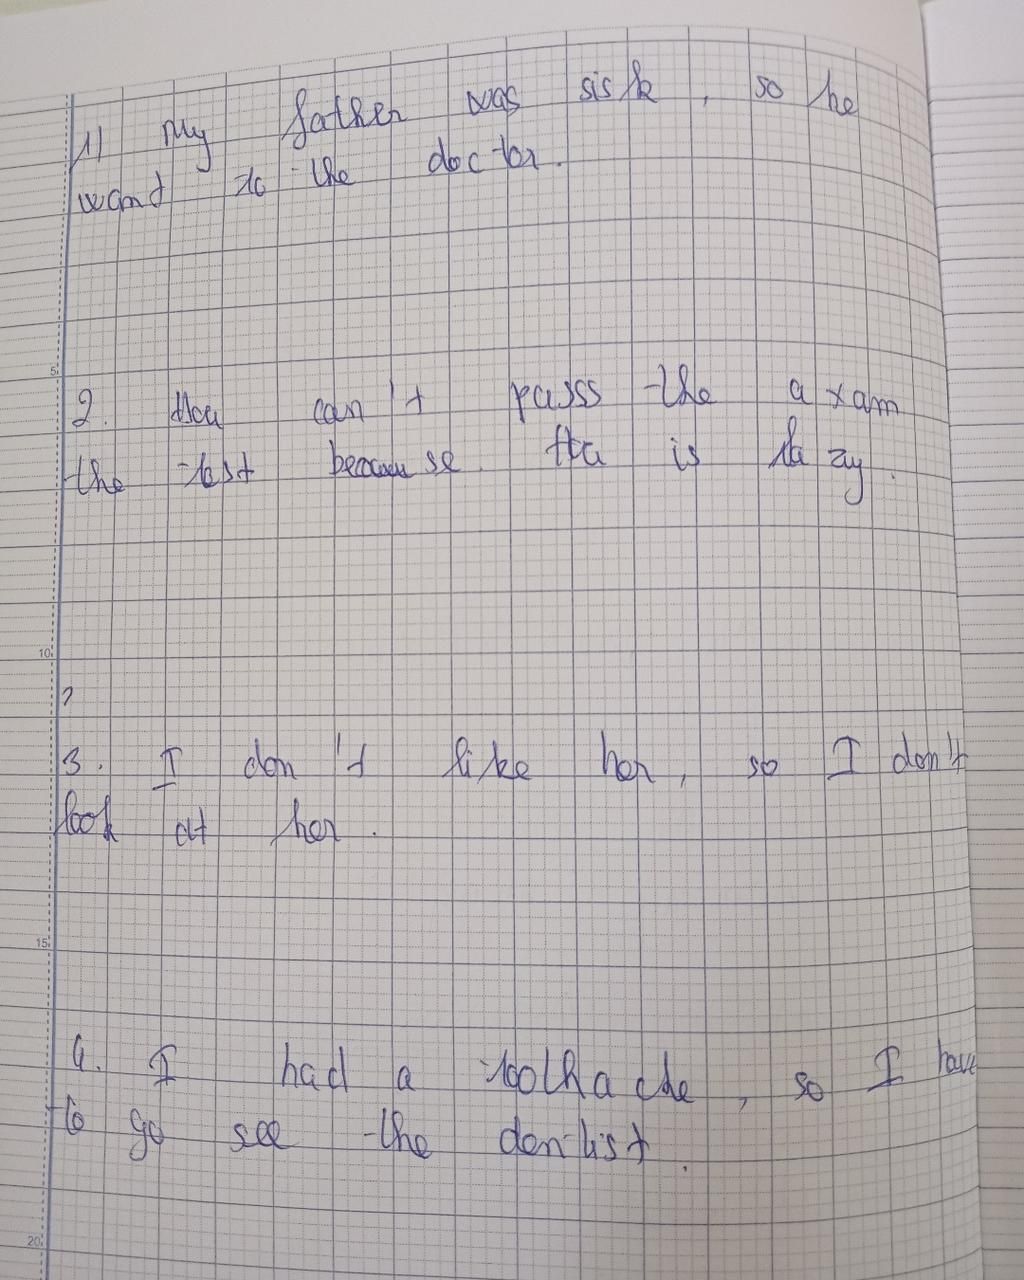 1) My father was sisk, so he
wand to the doctor.
2. Hoa can't passs the axam
the test because Hoa is lazy.
?
3. I don't like her, so I don't
look at her.
4. I had a toothache, so I have
to go see the dentist.
5
10
15
20